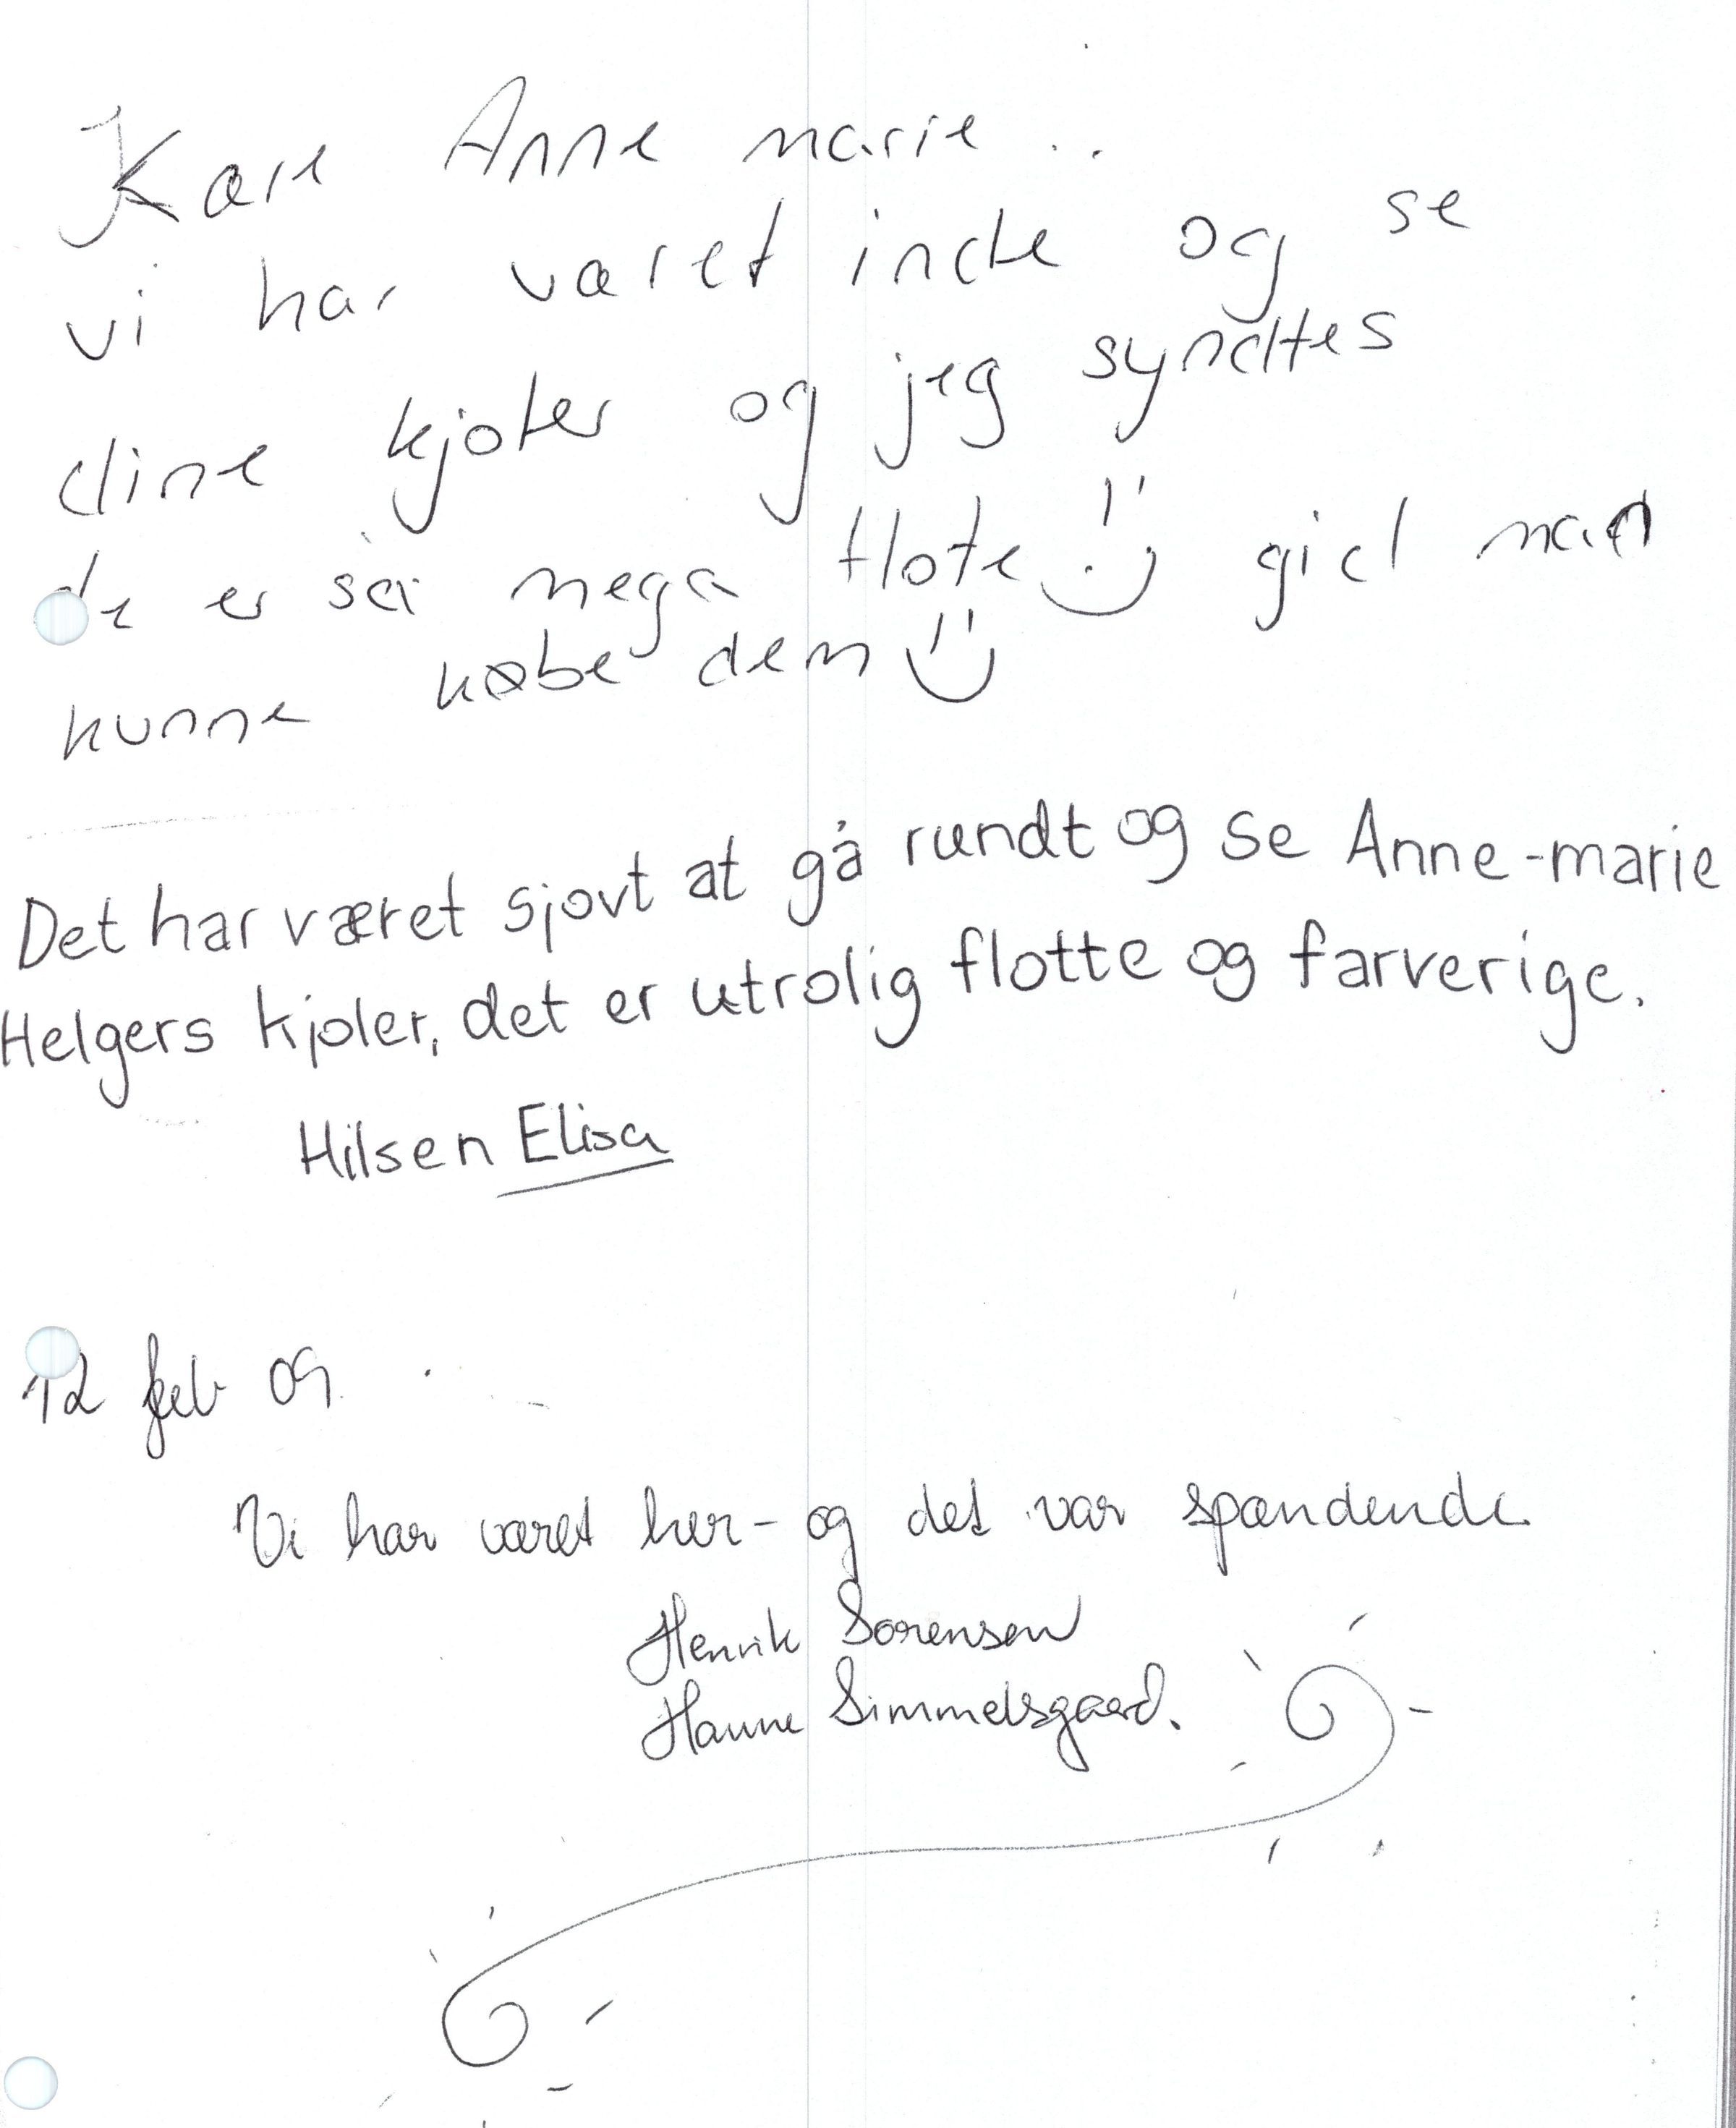 Kære Anne marie ..
vi har været inde og se
dine kjoler og jeg syndtes
de er så mega flote :) gid man
kunne købe dem :)
Det har været sjovt at gå rundt og se Anne-marie
Helgers kjoler, det er utrolig flotte og farverige.
Hilsen Elisa
12 feb 09.
Vi har været her - og det var spændende
Henrik Sørensen
Hanne Simmelsgaard.